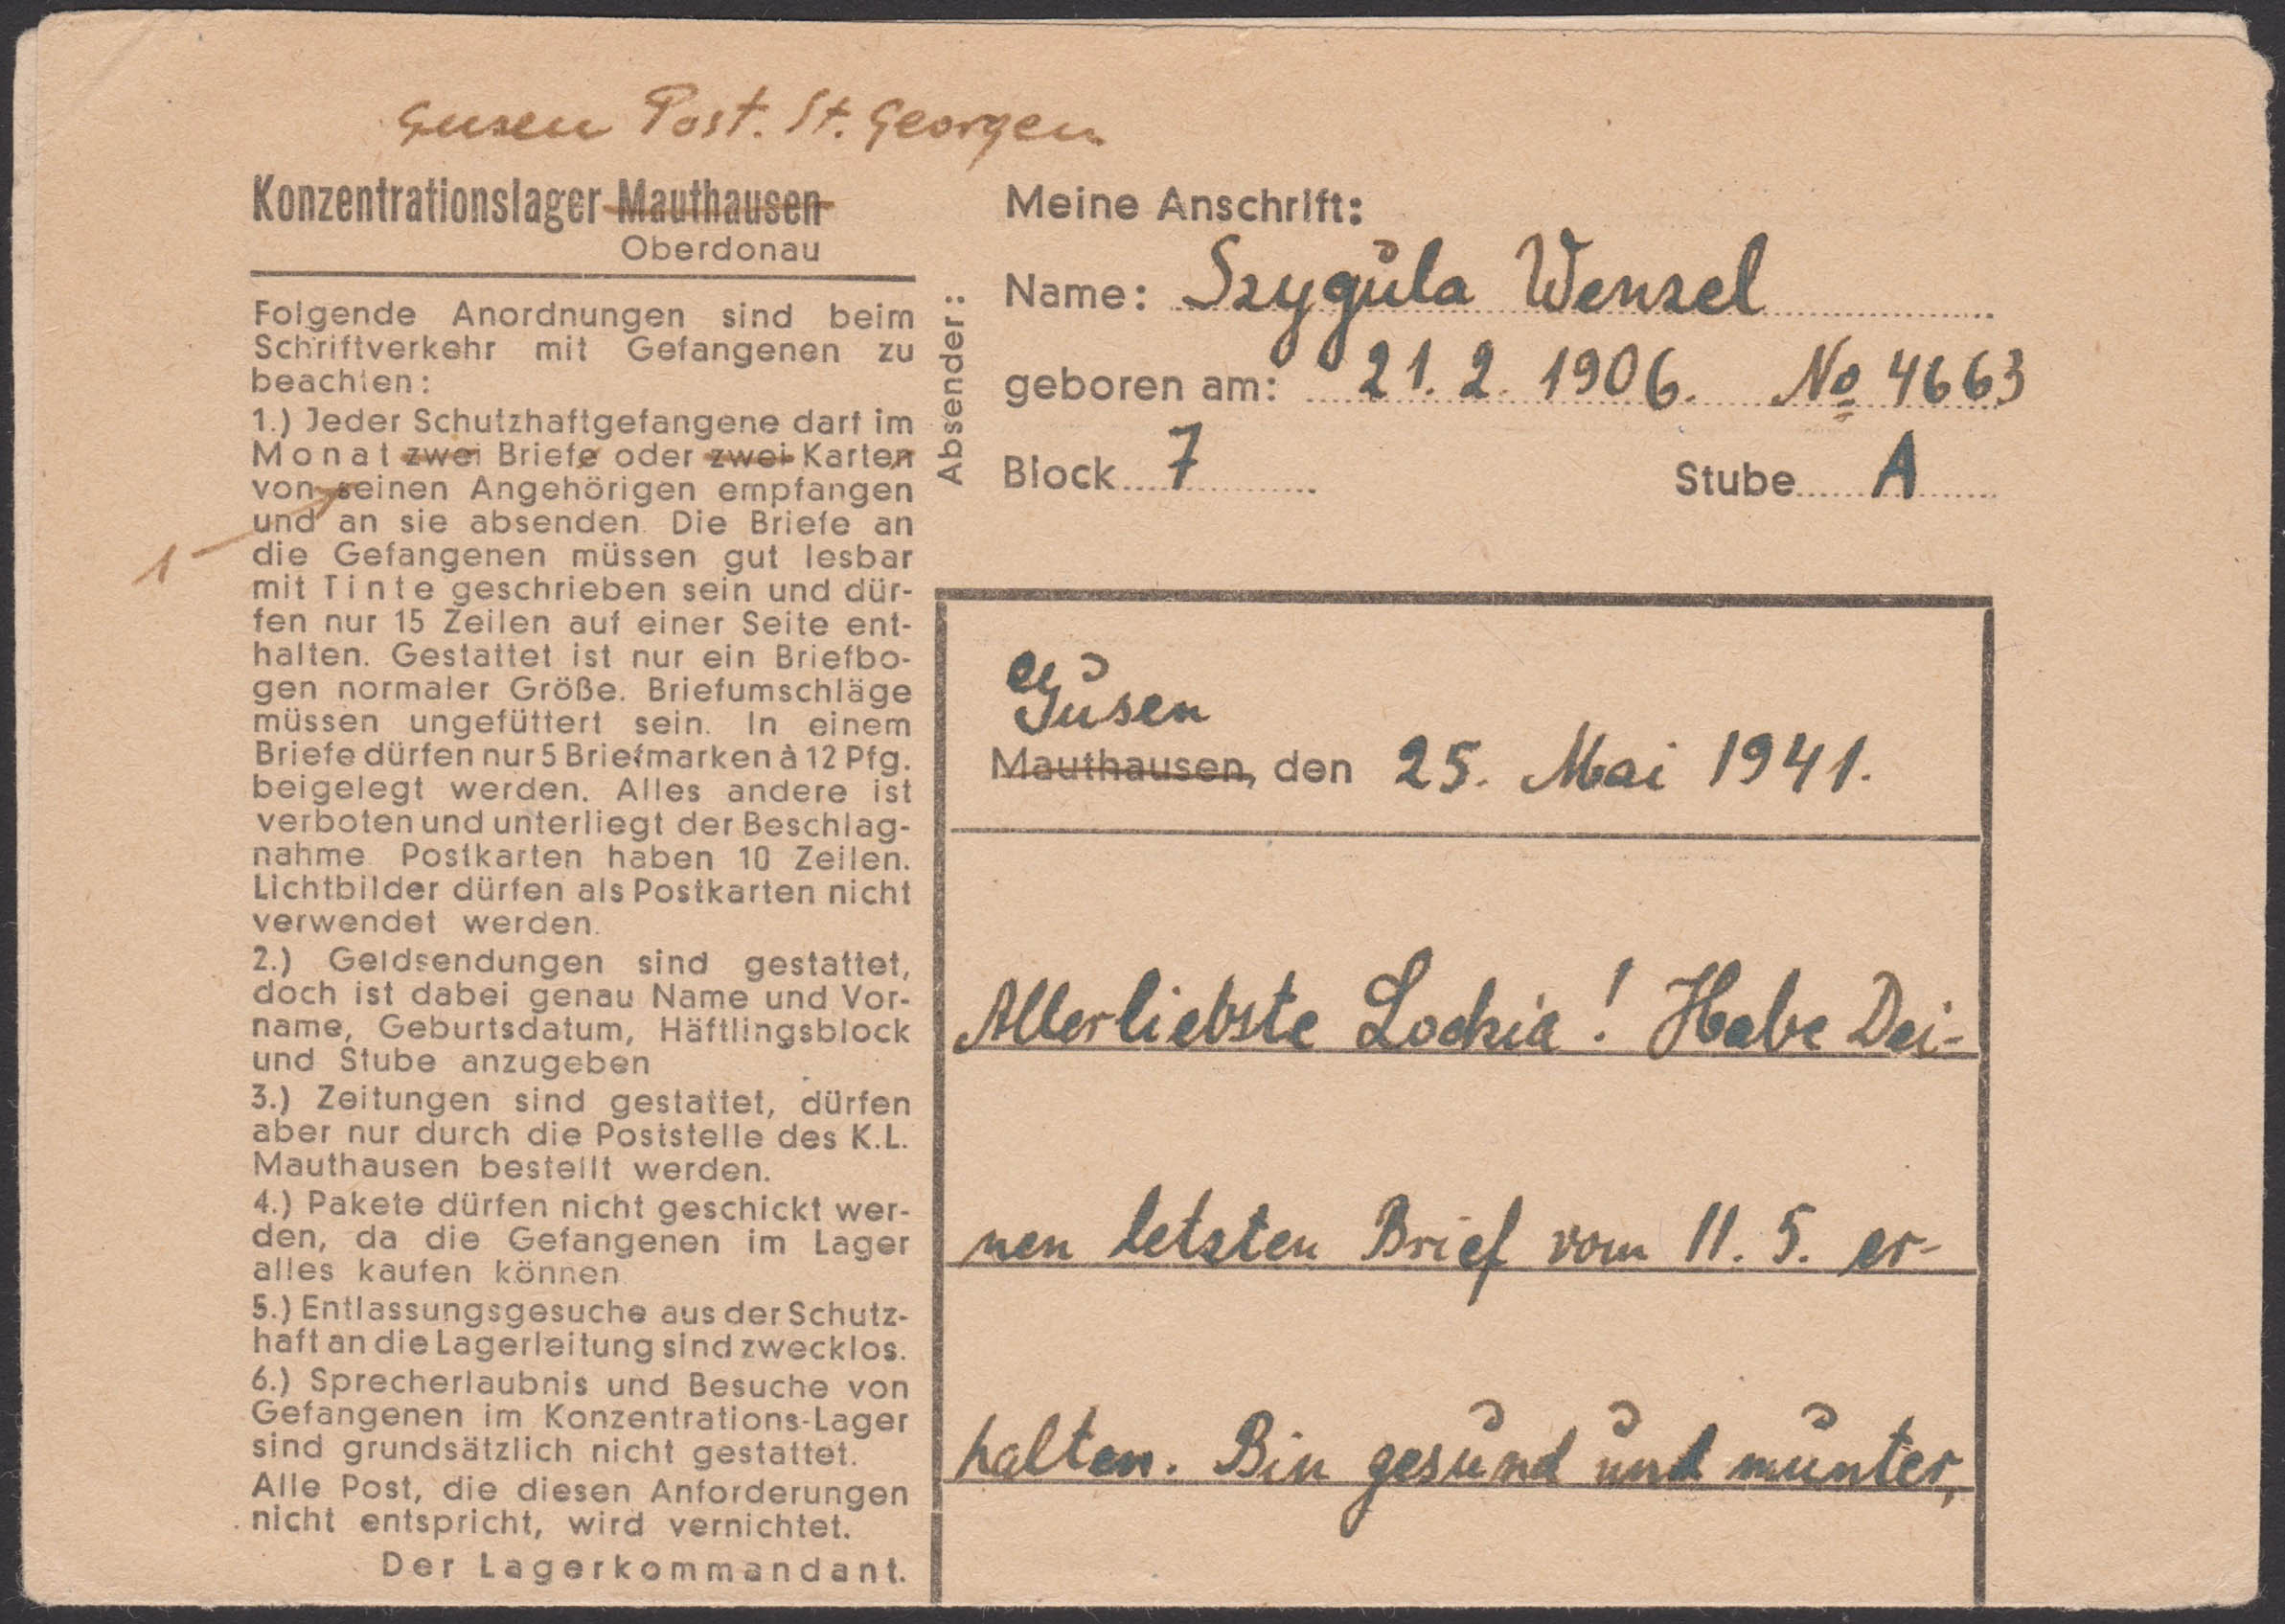 Gusen Post. St. Georgen
Konzentrationslager Mauthausen
Oberdonau
Folgende Anordnungen sind beim
Schriftverkehr mit Gefangenen zu
beachten:
1.) Jeder Schutzhaftgefangene darf im
Monat zwei Briefe oder zwei Karten
von seinen Angehörigen empfangen
und an sie absenden. Die Briefe an
die Gefangenen müssen gut lesbar
mit Tinte geschrieben sein und dür-
fen nur 15 Zeilen auf einer Seite ent-
halten. Gestattet ist nur ein Briefbo-
gen normaler Größe. Briefumschläge
müssen ungefüttert sein. In einem
Briefe dürfen nur 5 Briefmarken à 12 Pfg.
beigelegt werden. Alles andere ist
verboten und unterliegt der Beschlag-
nahme. Postkarten haben 10 Zeilen.
Lichtbilder dürfen als Postkarten nicht
verwendet werden.
2.) Geldsendungen sind gestattet,
doch ist dabei genau Name und Vor-
name, Geburtsdatum, Häftlingsblock
und Stube anzugeben
3.) Zeitungen sind gestattet, dürfen
aber nur durch die Poststelle des K.L.
Mauthausen bestellt werden.
4.) Pakete dürfen nicht geschickt wer-
den, da die Gefangenen im Lager
alles kaufen können
5.) Entlassungsgesuche aus der Schutz-
haft an die Lagerleitung sind zwecklos.
6.) Sprecherlaubnis und Besuche von
Gefangenen im Konzentrations-Lager
sind grundsätzlich nicht gestattet.
Alle Post, die diesen Anforderungen
nicht entspricht, wird vernichtet.
Der Lagerkommandant.
1
Absender:
Meine Anschrift:
Name: Szygula Wenzel
geboren am: 21. 2. 1906. No 4663
Block 7 Stube A
Gusen
Mauthausen, den 25. Mai 1941.
Allerliebste ! Habe Dei-
nen letzten Brief vom 11. 5. er-
halten. Bin gesund und munter,